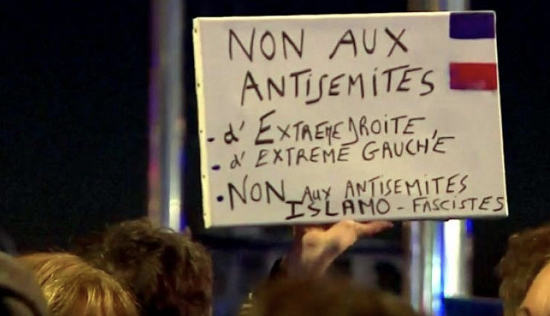 NON AUX
ANTISEMITES
- d'EXTREME DROITE
- d'EXTREME GAUCHE
• NON AUX ANTISEMITES
ISLAMO-FASCISTES